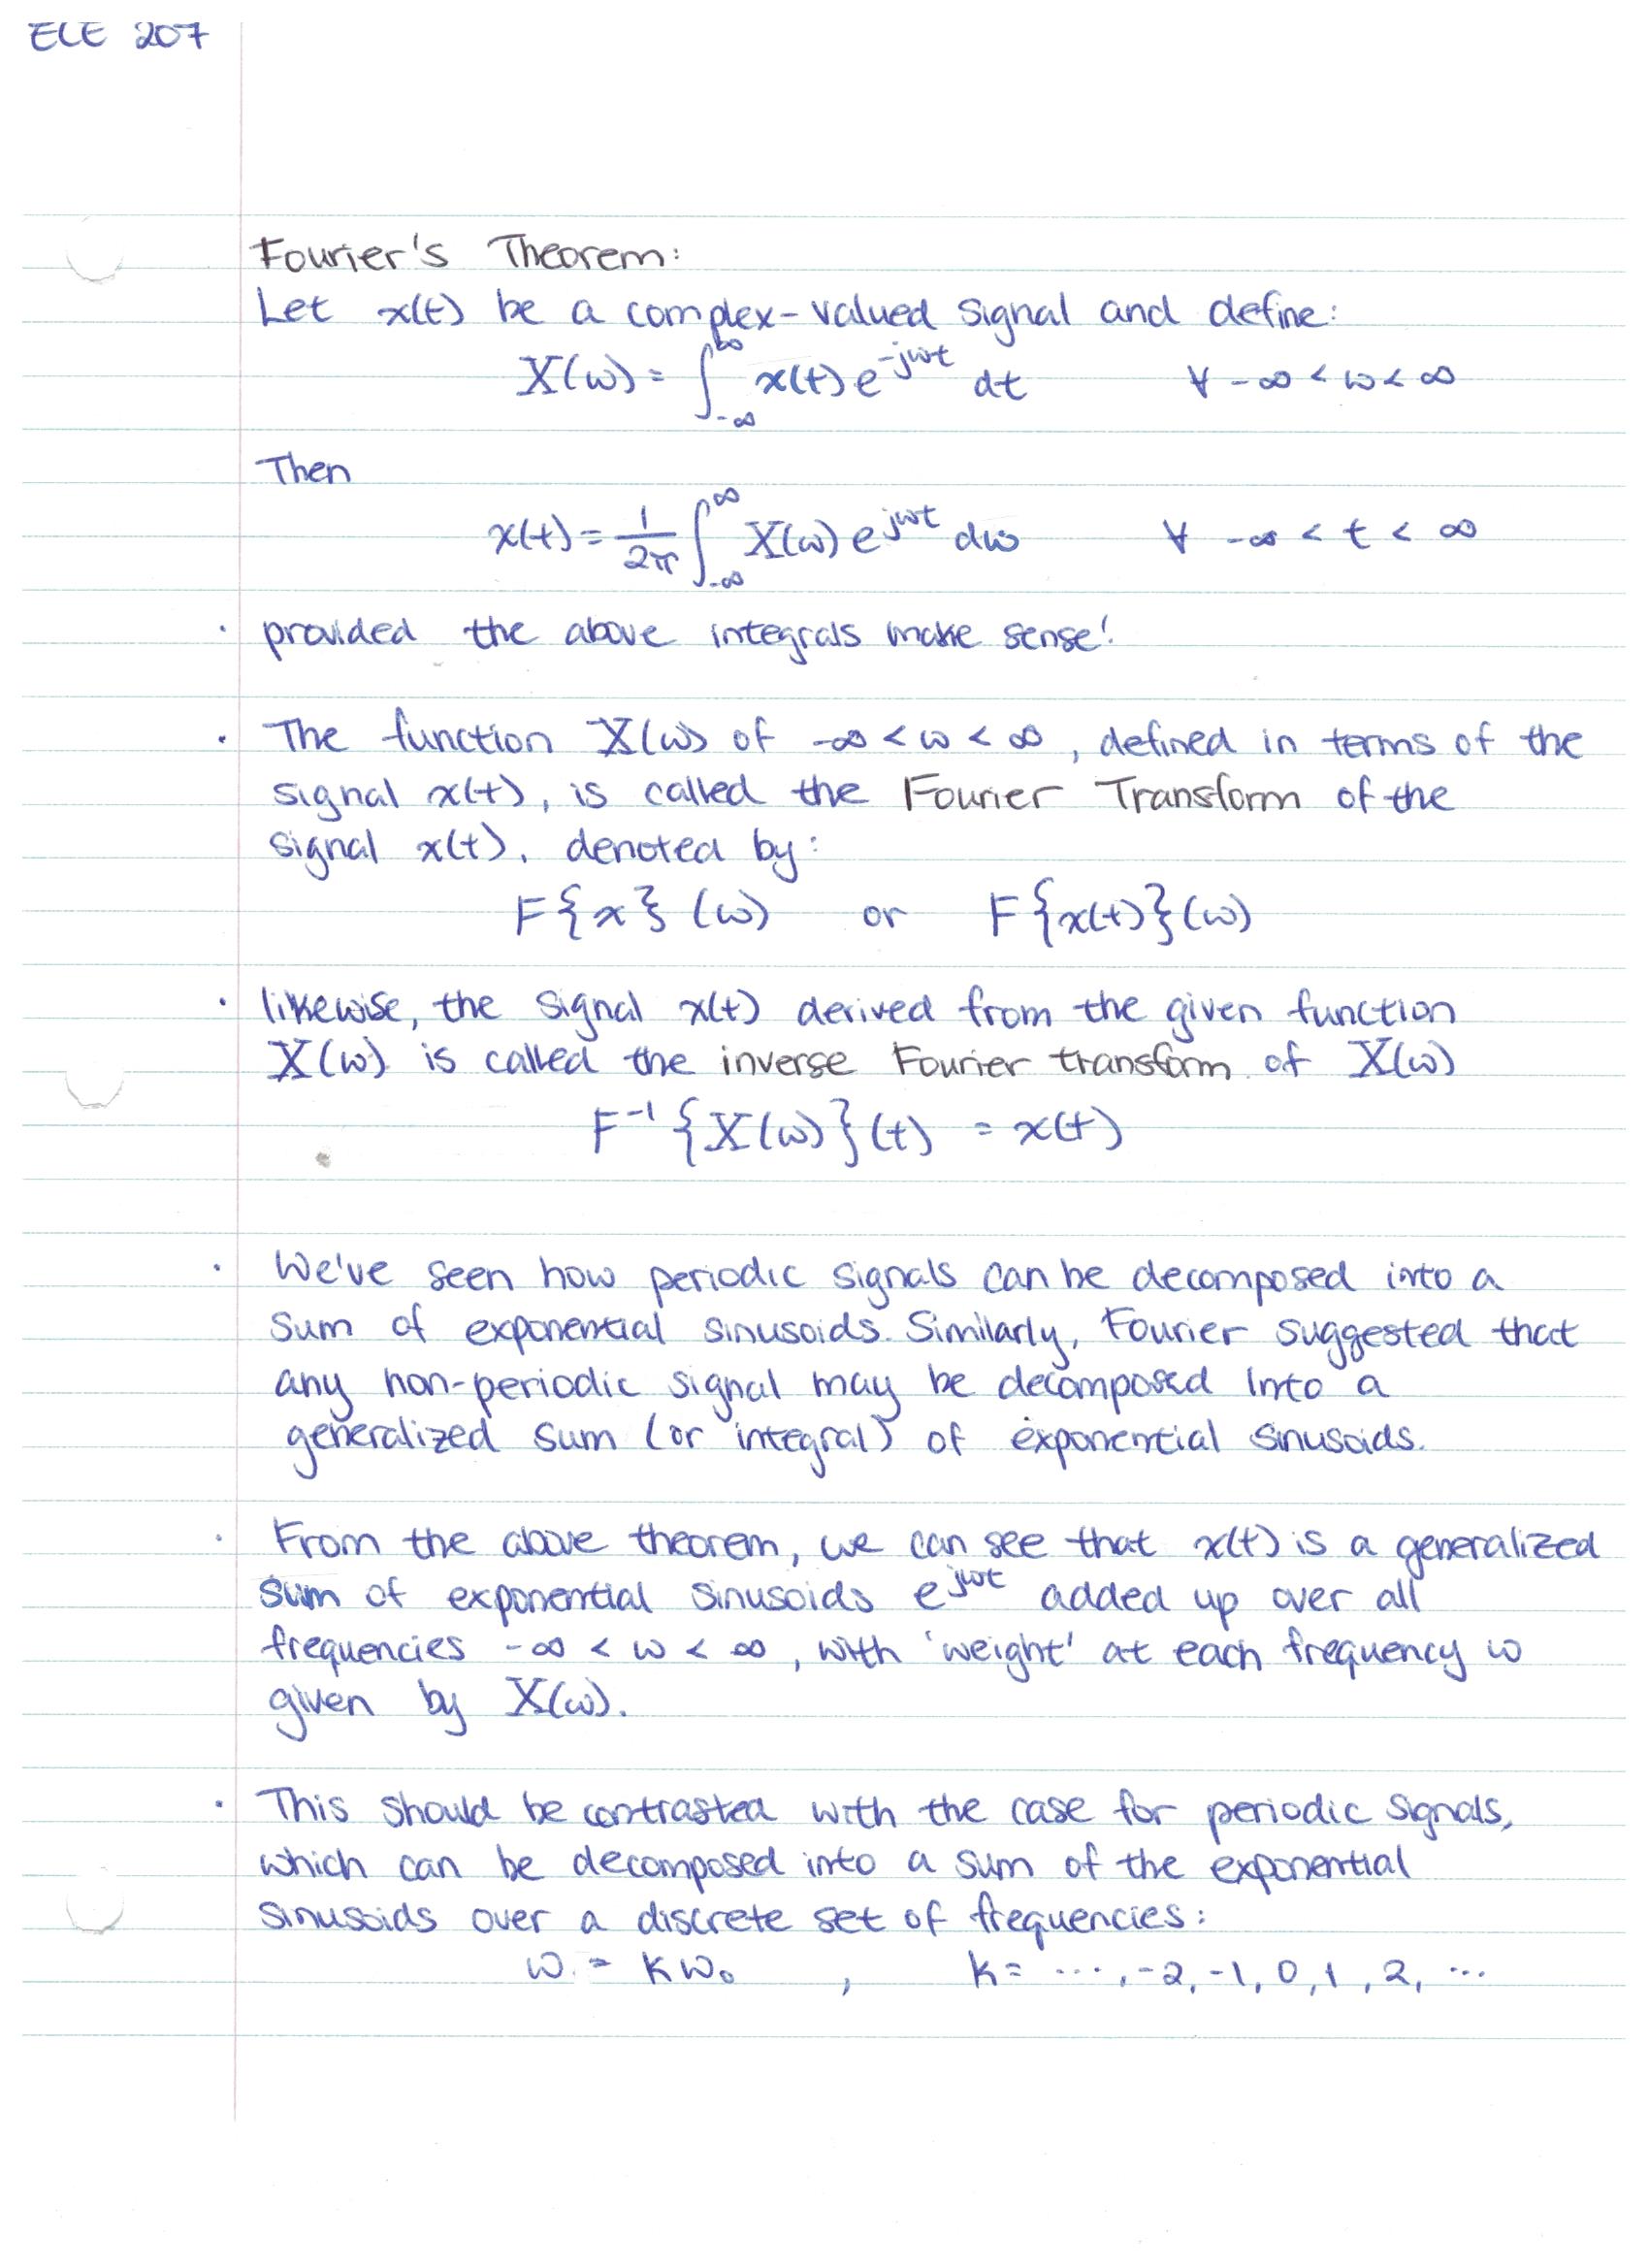 ECE 207
Fourier's Theorem:
Let x(t) be a complex-valued signal and define:
X(ω) = ∫_{-∞}^{∞} x(t) e^{-jωt} dt ∀ -∞ < ω < ∞
Then
x(t) = 1/2π ∫_{-∞}^{∞} X(ω) e^{jωt} dω ∀ -∞ < t < ∞
· provided the above integrals make sense!
· The function X(ω) of -∞ < ω < ∞, defined in terms of the
signal x(t), is called the Fourier Transform of the
signal x(t), denoted by:
F{x}(ω) or F{x(t)}(ω)
· likewise, the signal x(t) derived from the given function
X(ω) is called the inverse Fourier transform of X(ω)
F^{-1}{X(ω)}(t) = x(t)
· We've seen how periodic signals can be decomposed into a
sum of exponential sinusoids. Similarly, Fourier suggested that
any non-periodic signal may be decomposed into a
generalized sum (or integral) of exponential sinusoids.
· From the above theorem, we can see that x(t) is a generalized
sum of exponential sinusoids e^{jωt} added up over all
frequencies -∞ < ω < ∞, with 'weight' at each frequency ω
given by X(ω).
· This should be contrasted with the case for periodic signals,
which can be decomposed into a sum of the exponential
sinusoids over a discrete set of frequencies:
ω = kω₀ , k = ..., -2, -1, 0, 1, 2, ...